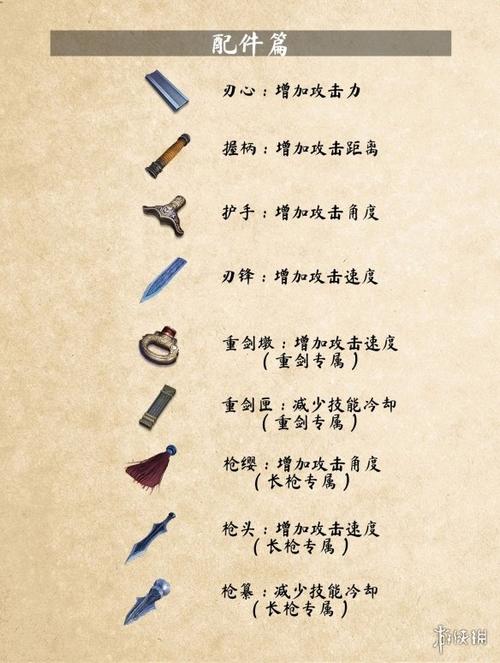 配件篇
刃心：增加攻击力
握柄：增加攻击距离
护手：增加攻击角度
刃锋：增加攻击速度
重剑墩：增加攻击速度
（重剑专属）
重剑匣：减少技能冷却
（重剑专属）
枪缨：增加攻击角度
（长枪专属）
枪头：增加攻击速度
（长枪专属）
枪纂：减少技能冷却
（长枪专属）
游侠网